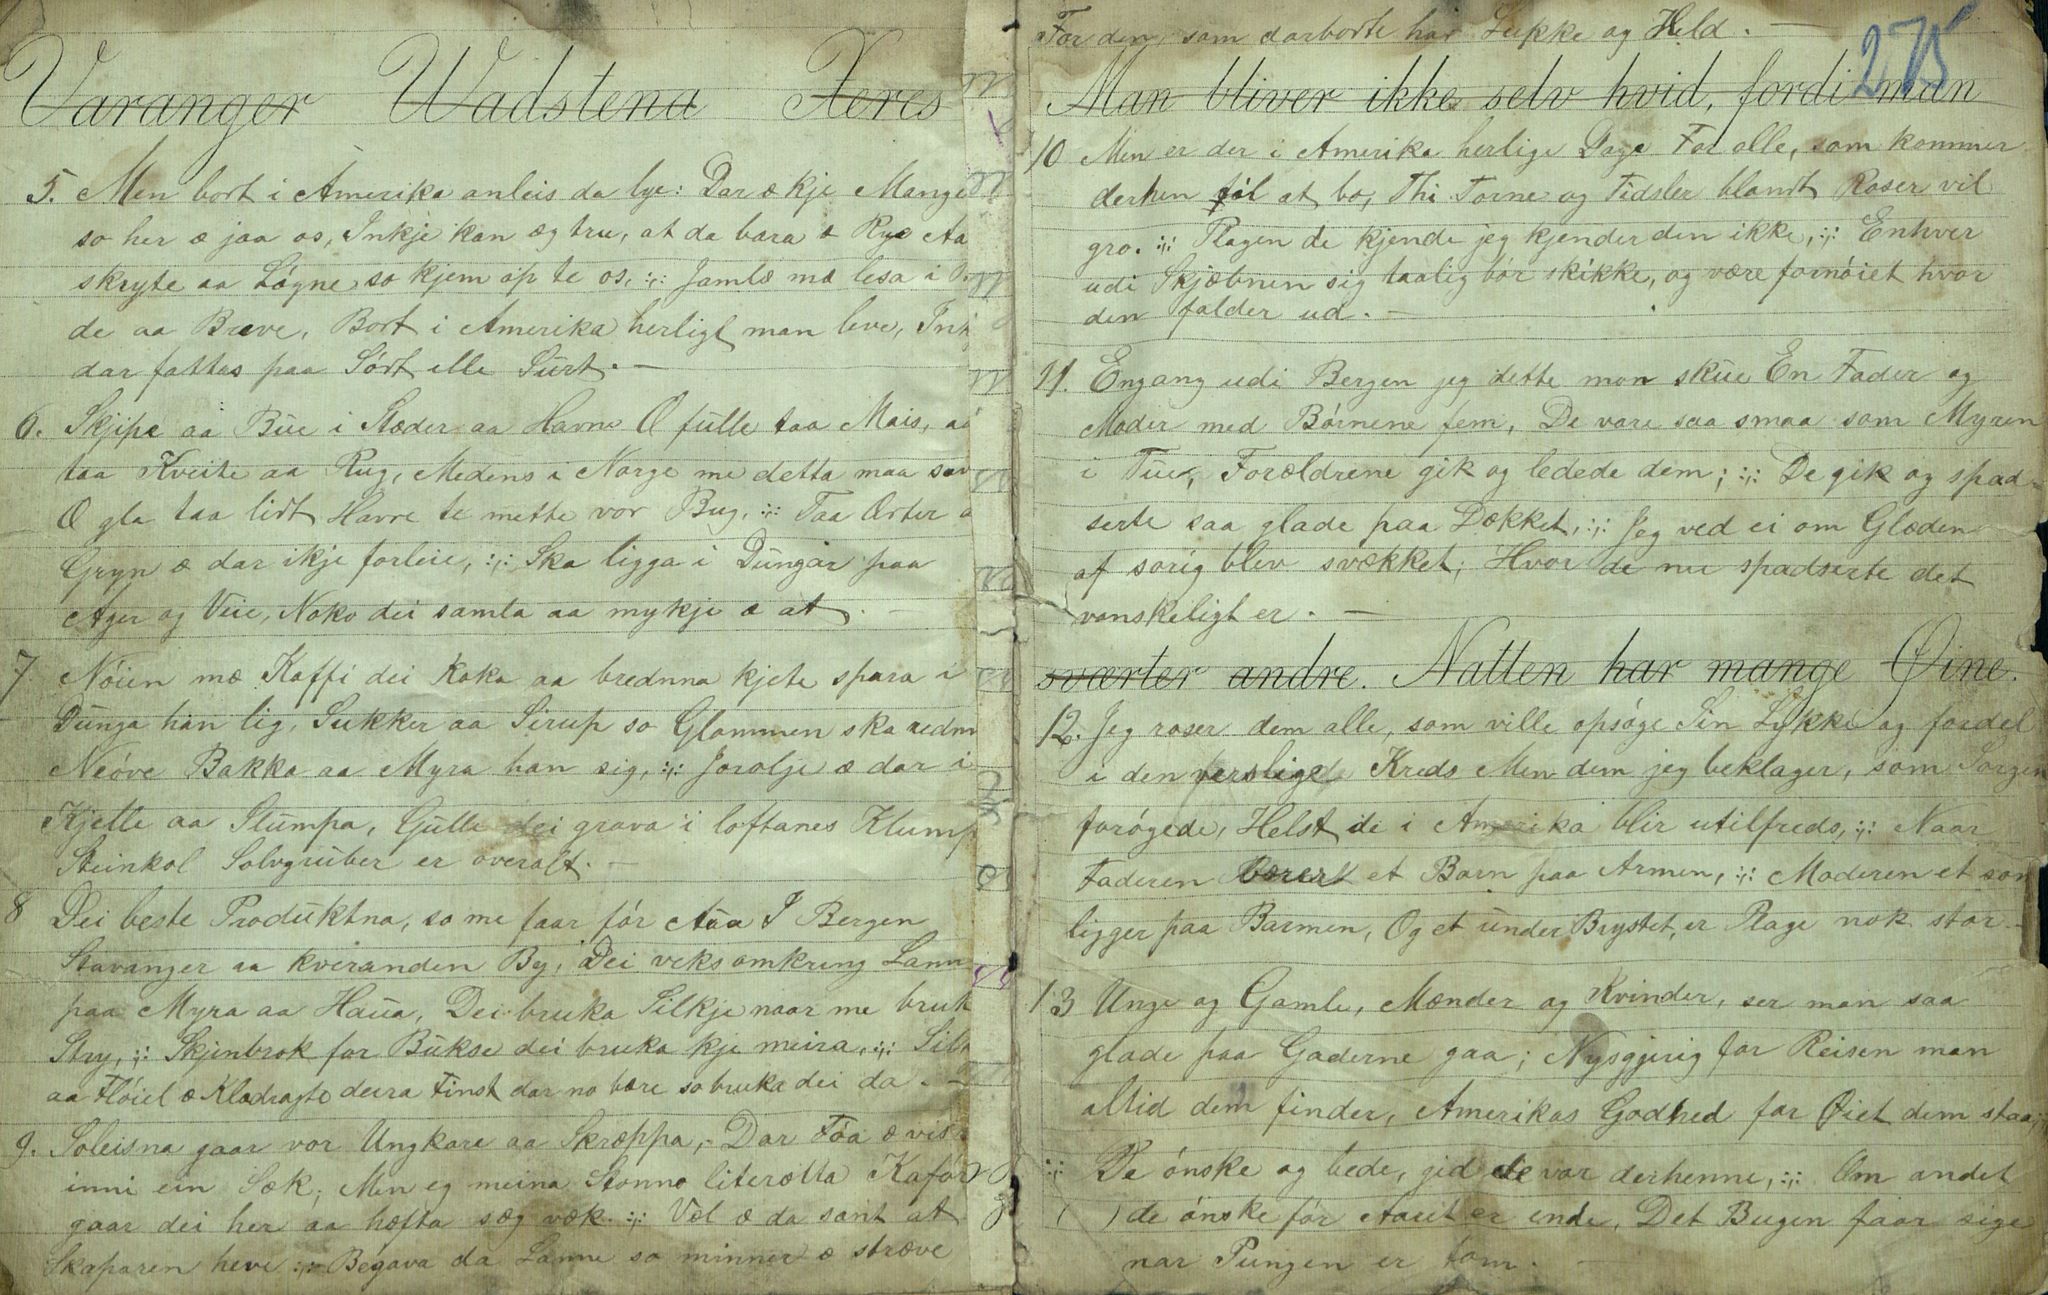 Varanger Wadstena Xeres
5. Men bort i Amerika anleis da lye: Dar æ kje Mange
so her æ jaa os, Inkje kan æg tru, at da bara æ Rye Aa
skryte aa Løgne so kjem op te os, :,: Jamlæ mæ lesa i
de aa Breve, Bort i Amerika herligt man leve,
dar fattas paa Sødt elle Surt. —
6. Skjipe aa Bue i Stæder aa Havne Æ fulle taa Mais, aa
taa Kveite aa Rug, Medens i Norge me detta maa
Æ gla taa lidt Havre te mette vor Bug, :,: Taa Ærter
Gryn æ dar ikje forleie, :,: Ska ligga i Dungar paa
Ager og Veie, Noko dei samla aa mykje æ at. —
7 Nóien mæ Kaffi dei koka aa brednna kjete spara i
Dunga han lig, Sukker aa Sirup so Glommen ska
Neóve Bakka aa Myra han sig, :,: Jorolje æ dar i
Kjelle aa Stumpa, Gulle dei grava i loftanes Klump
Steinkol Solvgruber er overalt. —
8 Dei beste Produktna, so me faar fór Aua I Bergen
Stavanger aa kveranden By, Dei veks omkring
paa Myra aa Haua, Dei bruka Silkje naar me bruk
Stry, :,: Skjinbrok for Bukse dei bruka kje meira, :,:
aa Flóiel æ Klædragte deira Finst dar no bære so bruka dei da. —
9. Soleisna gaar vor Ungkare aa Skræppa, Dar Fóa æ vis
inni ein Sæk; Men eg meina Stonno literætta
gaar dei her aa hæfta sæg væk. :,: Vel æ da sant at
Skaparen heve :,: Begava da Lanne so minner æ stræve
For den, som darborte har Lukke og Held. —
275
Man bliver ikke selv hvid, fordi man
10 Men er der i Amerika herlige Dage For alle, som kommer
derhen til at bo, Thi Torne og Tidsler blandt Roser vil
gro. :,: Plagen de kjende jeg kjender den ikke, :,: Enhver
udi Skjæbnen sig taalig bór skikke, og være fornóiet hvor
den falder ud. —
11. Engang udi Bergen jeg dette mon skue En Fader og
Moder med Børnene fem, De vare saa smaa som Myren
i Tue, Forældrene gik og ledede dem; :,: De gik og spad-
serte saa glade paa Dækket, :,: Jeg ved ei om Glæden
af sorig blev svækket; Hvor de nu spadserte det
vanskeligt er. —
sværter andre. Natten har mange Øine.
12. Jeg roser dem alle, som ville opsóge Sin Lykke og fordel
i den verslige Kreds Men dem jeg beklager, som Sorgen
forógede, Helst de i Amerika blir utilfreds, :,: Naar
Faderen bærer et Barn paa Armen, :,: Moderen et som
ligger paa Barmen, Og et under Brystet, er Plage nok stor —
13 Unge og Gamle, Mænder og Kvinder, ser man saa
glade paa Gaderne gaa; Nysgjerig for Reisen man
altid dem finder, Amerikas Godhed for Øiet dem staa,
:,: De ónske og bede, gid de var derhenne, :,: Om andet
de ónske før Aaret er ende, Det Bugen faar sige
nar Pungen er tom. —